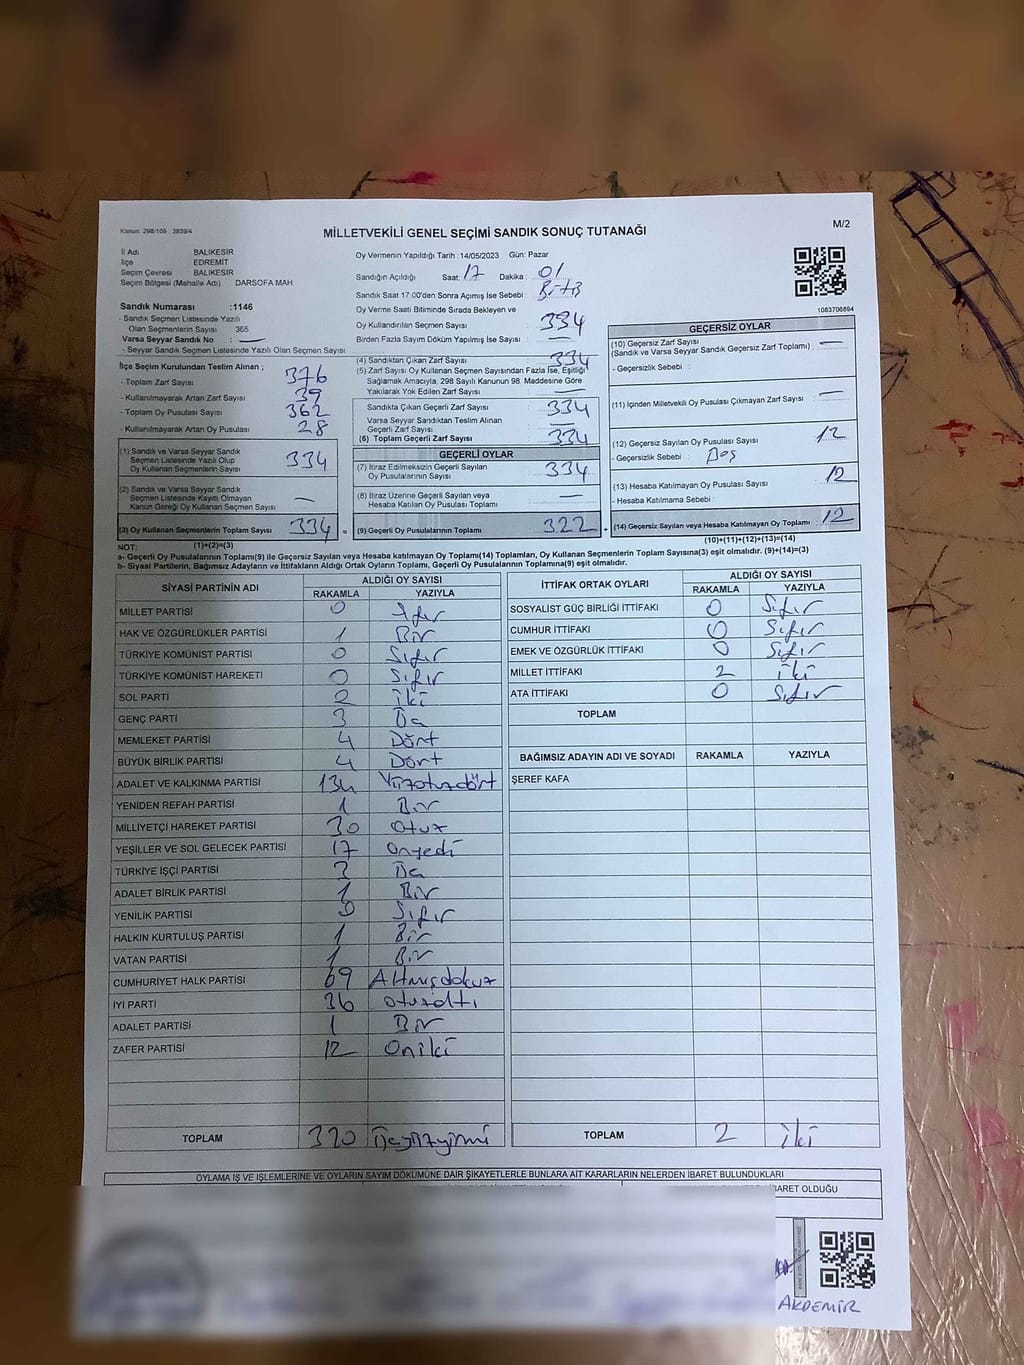 Kanun: 298/105 2839/4
MİLLETVEKİLİ GENEL SEÇİMİ SANDIK SONUÇ TUTANAĞI
M/2
İl Adı BALIKESİR
İlçe EDREMİT
Seçim Çevresi BALIKESİR
Seçim Bölgesi (Mahalle Adı) DARSOFA MAH
Sandık Numarası :1146
- Sandık Seçmen Listesinde Yazılı
Olan Seçmenlerin Sayısı 365
Varsa Seyyar Sandık No : —
- Seyyar Sandık Seçmen Listesinde Yazılı Olan Seçmen Sayısı
İlçe Seçim Kurulundan Teslim Alınan ;
- Toplam Zarf Sayısı 376
- Kullanılmayarak Artan Zarf Sayısı 39
- Toplam Oy Pusulası Sayısı 362
- Kullanılmayarak Artan Oy Pusulası 28
(1) Sandık ve Varsa Seyyar Sandık
Seçmen Listesinde Yazılı Olup
Oy Kullanan Seçmenlerin Sayısı 334
(2) Sandık ve Varsa Seyyar Sandık
Seçmen Listesinde Kayıtlı Olmayan
Kanun Gereği Oy Kullanan Seçmenlerin Sayısı —
(3) Oy Kullanan Seçmenlerin Toplam Sayısı 334 =
(1)+(2)=(3)
Oy Vermenin Yapıldığı Tarih : 14/05/2023 Gün: Pazar
Sandığın Açıldığı Saat: 17 Dakika : 01
Sandık Saat 17:00'den Sonra Açılmış İse Sebebi :
Oy Verme Saati Bitiminde Sırada Bekleyen ve
Oy Kullandırılan Seçmen Sayısı : 334
Birden Fazla Sayım Döküm Yapılmış İse Sayısı : —
(4) Sandıktan Çıkan Zarf Sayısı 334
(5) Zarf Sayısı Oy Kullanan Seçmen Sayısından Fazla İse, Eşitliği
Sağlamak Amacıyla, 298 Sayılı Kanunun 98. Maddesine Göre
Yakılarak Yok Edilen Zarf Sayısı —
Sandıkta Çıkan Geçerli Zarf Sayısı 334
Varsa Seyyar Sandıktan Teslim Alınan
Geçerli Zarf Sayısı —
(6) Toplam Geçerli Zarf Sayısı 334
GEÇERLİ OYLAR
(7) İtiraz Edilmeksizin Geçerli Sayılan
Oy Pusulalarının Sayısı 334
(8) İtiraz Üzerine Geçerli Sayılan veya
Hesaba Katılan Oy Pusulası Sayısı —
(9) Geçerli Oy Pusulalarının Toplamı 322 +
1083706894
GEÇERSİZ OYLAR
(10) Geçersiz Zarf Sayısı : —
(Sandık ve Varsa Seyyar Sandık Geçersiz Zarf Toplamı)
- Geçersizlik Sebebi :
(11) İçinden Milletvekili Oy Pusulası Çıkmayan Zarf Sayısı : —
(12) Geçersiz Sayılan Oy Pusulası Sayısı : 12
- Geçersizlik Sebebi : Boş
(13) Hesaba Katılmayan Oy Pusulası Sayısı : 12
- Hesaba Katılmama Sebebi :
(14) Geçersiz Sayılan veya Hesaba Katılmayan Oy Toplamı : 12
(10)+(11)+(12)+(13)=(14)
NOT:
a- Geçerli Oy Pusulalarının Toplamı(9) ile Geçersiz Sayılan veya Hesaba katılmayan Oy Toplamı(14) Toplamları, Oy Kullanan Seçmenlerin Toplam Sayısına(3) eşit olmalıdır. (9)+(14)=(3)
b- Siyasi Partilerin, Bağımsız Adayların ve İttifakların Aldığı Ortak Oyların Toplamı, Geçerli Oy Pusulalarının Toplamına(9) eşit olmalıdır.
SİYASİ PARTİNİN ADI ALDIĞI OY SAYISI
RAKAMLA YAZIYLA
MİLLET PARTİSİ 0 Sıfır
HAK VE ÖZGÜRLÜKLER PARTİSİ 1 Bir
TÜRKİYE KOMÜNİST PARTİSİ 0 Sıfır
TÜRKİYE KOMÜNİST HAREKETİ 0 Sıfır
SOL PARTİ 2 iki
GENÇ PARTİ 3 Üç
MEMLEKET PARTİSİ 4 Dört
BÜYÜK BİRLİK PARTİSİ 4 Dört
ADALET VE KALKINMA PARTİSİ 134 Yüzotuzdört
YENİDEN REFAH PARTİSİ 1 Bir
MİLLİYETÇİ HAREKET PARTİSİ 30 Otuz
YEŞİLLER VE SOL GELECEK PARTİSİ 17 Onyedi
TÜRKİYE İŞÇİ PARTİSİ 3 Üç
ADALET BİRLİK PARTİSİ 1 Bir
YENİLİK PARTİSİ 0 Sıfır
HALKIN KURTULUŞ PARTİSİ 1 Bir
VATAN PARTİSİ 1 Bir
CUMHURİYET HALK PARTİSİ 69 Altmışdokuz
İYİ PARTİ 36 otuzaltı
ADALET PARTİSİ 1 Bir
ZAFER PARTİSİ 12 Oniki
TOPLAM 320 Üçyüzyirmi
İTTİFAK ORTAK OYLARI ALDIĞI OY SAYISI
RAKAMLA YAZIYLA
SOSYALİST GÜÇ BİRLİĞİ İTTİFAKI 0 Sıfır
CUMHUR İTTİFAKI 0 Sıfır
EMEK VE ÖZGÜRLÜK İTTİFAKI 0 Sıfır
MİLLET İTTİFAKI 2 iki
ATA İTTİFAKI 0 Sıfır
TOPLAM
BAĞIMSIZ ADAYIN ADI VE SOYADI RAKAMLA YAZIYLA
ŞEREF KAFA
TOPLAM 2 iki
OYLAMA İŞ VE İŞLEMLERİNE VE OYLARIN SAYIM DÖKÜMÜNE DAİR ŞİKAYETLERLE BUNLARA AİT KARARLARIN NELERDEN İBARET BULUNDUKLARI
İBARET OLDUĞU
AKDEMİR